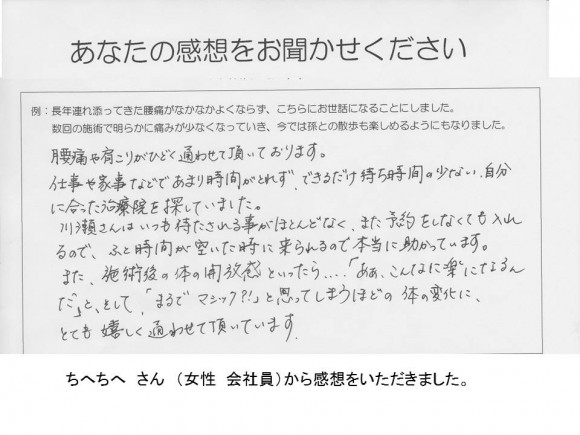 あなたの感想をお聞かせください
例：長年連れ添ってきた腰痛がなかなかよくならず、こちらにお世話になることにしました。
数回の施術で明らかに痛みが少なくなっていき、今では孫との散歩も楽しめるようにもなりました。
腰痛や肩こりがひどく通わせて頂いております。
仕事や家事などであまり時間がとれず、できるだけ待ち時間の少ない、自分
に合った治療院を探していました。
川瀬さんはいつも待たされる事がほとんどなく、また予約をしなくても入れ
るので、ふと時間が空いた時に来られるので本当に助かっています。
また、施術後の体の開放感といったら....「ああ、こんなに楽になるん
だ」と、そして、「まるでマジック?!」と思ってしまうほどの体の変化に、
とても嬉しく通わせて頂いています。
ちへちへ さん （女性 会社員）から感想をいただきました。